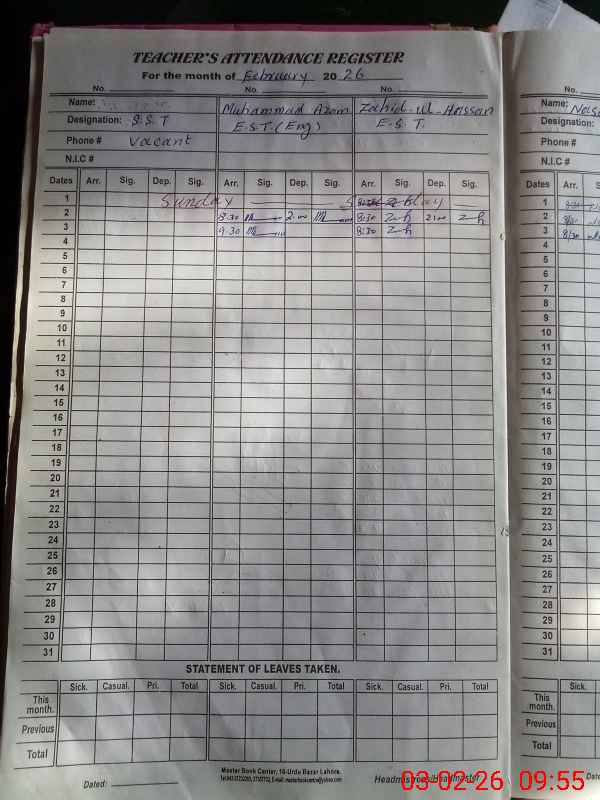 TEACHER'S ATTENDANCE REGISTER
For the month of February 2026
No. No. No.
Name: Muhammad Azam Zahid-ul-Hassan
Designation: S.S.T E.S.T.(Eng) E.S.T.
Phone # Vacant
N.I.C #
Dates Arr. Sig. Dep. Sig. Arr. Sig. Dep. Sig. Arr. Sig. Dep. Sig.
1 Sunday
2 8:30 2:00 8:30 Zh 2:00 Zh
3 9:30 8:30 Zh
4
5
6
7
8
9
10
11
12
13
14
15
16
17
18
19
20
21
22
23
24
25
26
27
28
29
30
31
STATEMENT OF LEAVES TAKEN.
Sick. Casual. Pri. Total Sick. Casual. Pri. Total Sick. Casual. Pri. Total
This month.
Previous
Total
Master Book Center, 16-Urdu Bazar Lahore.
Dated: Headmistress/Headmaster
No.
Name:
Designation:
Phone #
N.I.C #
Dates Arr. Sig.
1
2
3 8/30
4
5
6
7
8
9
10
11
12
13
14
15
16
17
18
19
20
21
22
23
24
25
26
27
28
29
30
31
Sick.
This month.
Previous
Total
03-02-26 09:55